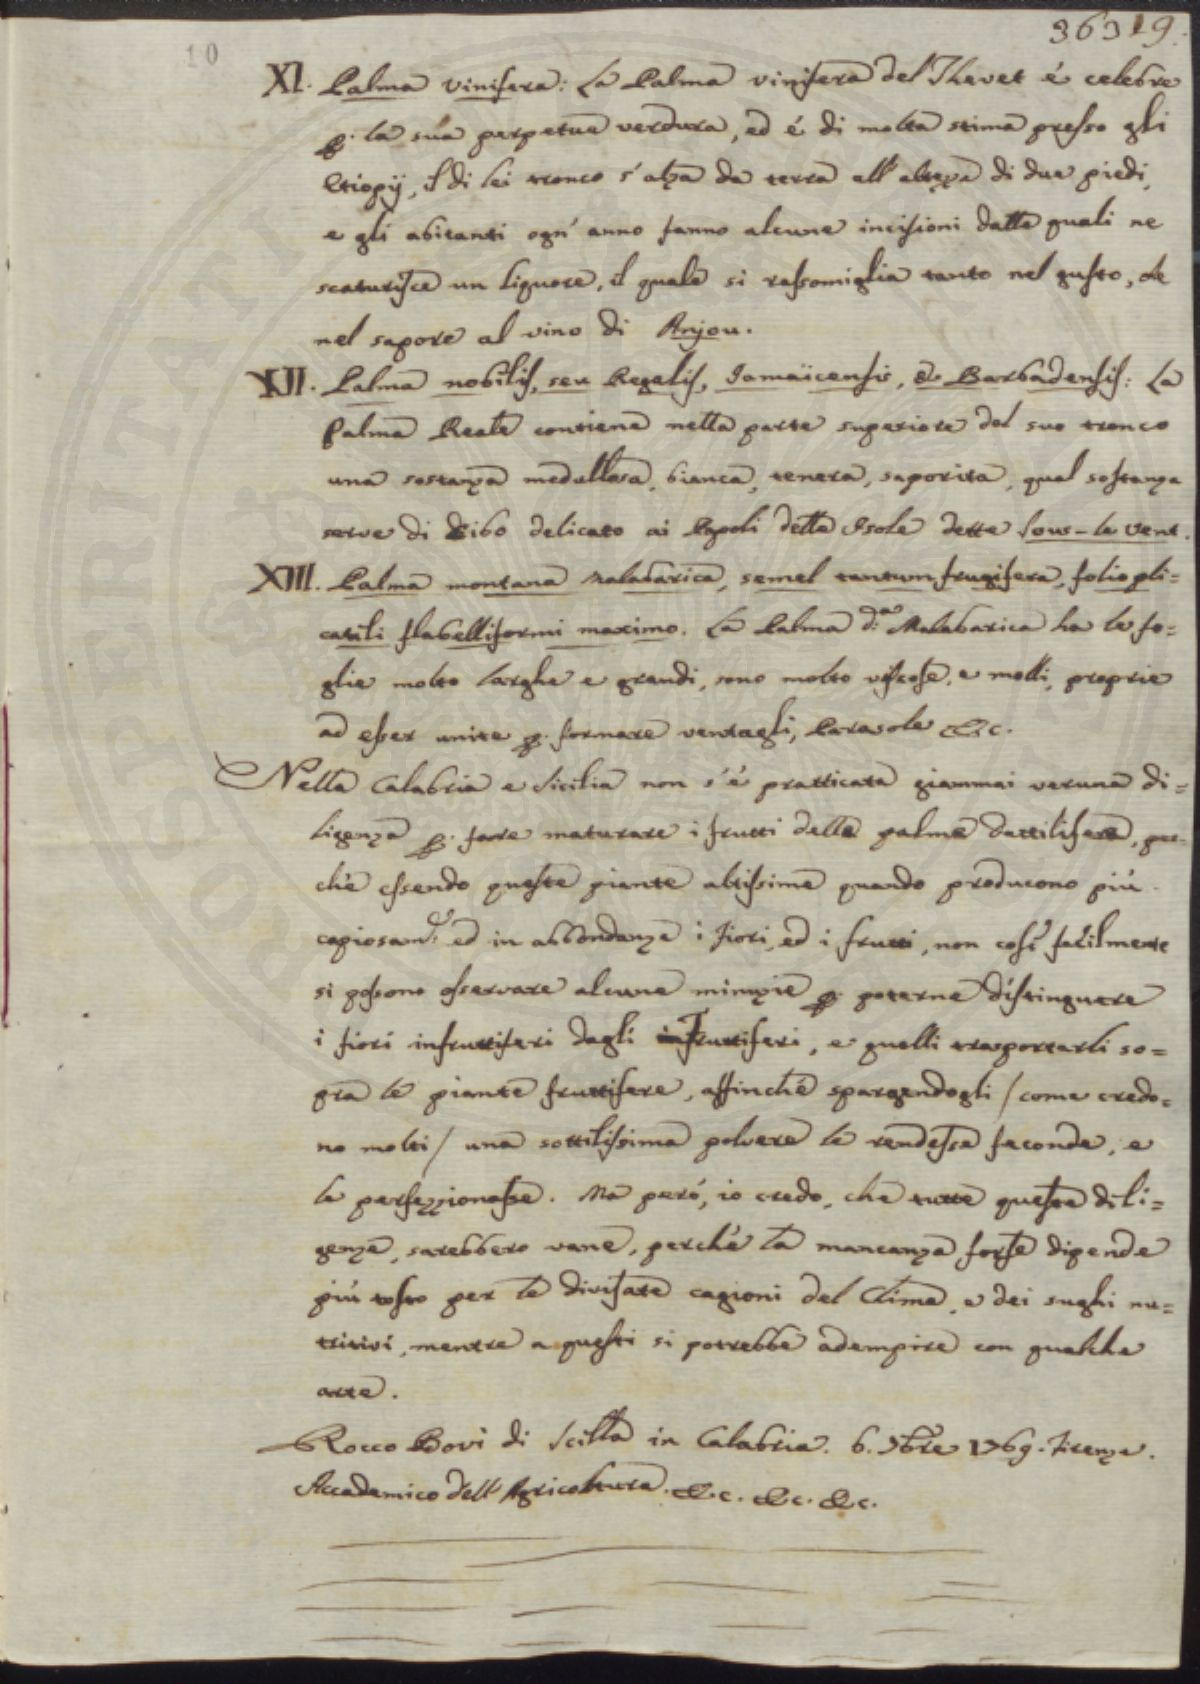 10
36319.
XI. Palma vinifera: La Palma vinifera del Thevet é celebre
p. la sua perpetua verdura, ed é di molta stima presso gli
Etiopij, il di lei tronco s'alza da terra all'altezza di due piedi,
e gli abitanti ogn'anno fanno alcune incisioni dalle quali ne
scaturisce un liquore, il quale si rassomiglia tanto nel gusto, che
nel sapore al vino di Anjou.
XII. Palma nobilis, seu Regalis, Jamaicensis, & Barbadensis: La
Palma Reale contiene nella parte superiore del suo tronco
una sostanza medullosa, bianca, tenera, saporita, qual sostanza
serve di Cibo delicato ai Popoli delle Isole dette Sous-le Vent.
XIII. Palma montana Malabarica, semel tantum frugifera, folio pli=
catili flabelliformi maximo. La Palma d.a Malabarica ha le fo=
glie molto larghe e grandi, sono molto viscose, e molli, proprie
ad esser unite p. formare ventagli, Parasole &.c.
Nella Calabria e Sicilia non s'é pratticata giammai veruna di=
ligenza p. fare maturare i frutti delle palme dattilifere, per=
chè essendo queste piante altissime quando producono più
copiosam.e ed in abbondanza i fiori, ed i frutti, non così facilmente
si possono osservare alcune minuzie p. poterne distinguere
i fiori infruttiferi dagli fruttiferi, e quelli trasportarli so=
pra le piante fruttifere, affinchè spargendogli / come credo=
no molti / una sottilissima polvere le rendesse feconde, e
le perfezzionasse. Ma peró, io credo, che tutte queste dili=
genze, sarebbero vane, perchè la mancanza forse dipende
piú tosto per le divisate cagioni del Clima, e dei sughi nu=
tritivi, mentre a questi si potrebbe adempire con qualche
arte.
Rocco Bovi di Scilla in Calabria. 6. 9bre 1769. Firenze.
Accademico dell'Agricoltura. &.c. &.c. &c.